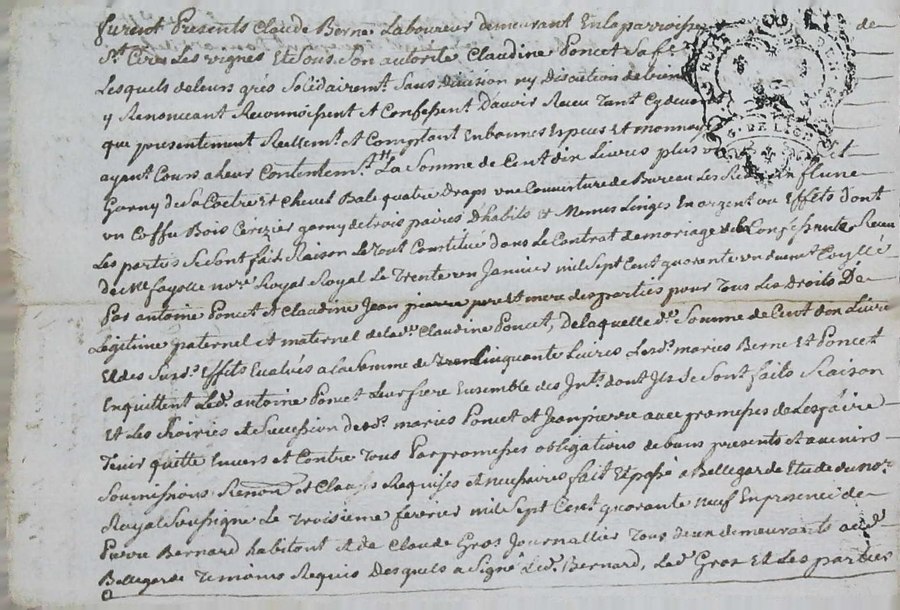 furent Presents Claude Berne Laboureur demeurant En la parroisse de
St. Cire Les vignes Et Sous Son autorité Claudine Poncet Sa
Lesquels de leurs grés Solidairemt. Sans division ny discution de biens
y Renonceant Reconnoissent et Confessent D'avoir Receu Tant Cy devant
que presentement Reellemt. et Comptant En bonnes Especes Et monnoye
ayant Cours a leur Contentemt. La Somme de Cent dix Livres plus
Garny de Sa Coetre Et Chevet Bale quatre Draps une Couverture de Bureau
un Coffre Bois Cerizier garny de trois paires D'habits Et Menus Linges En argent ou Effets dont
Les parties Se Sont fait Raison Le Tout Constitué dans Le Contrat de mariage de la Confessante Receu
de Me. fayolle nore. Royal Le Trente un Janvier mil Sept Cent quarante un
Par antoine Poncet et Claudine Jean pierre pere et mere des parties pour Tous Les Droits De
Legitime paternel et maternel de la de. Claudine Poncet, De laquelle de. Somme de Cent dix Livres
Et des Susds. Effets Evalués a la Somme de Cinquante Livres Les ds. mariés Berne Et Poncet
Enquittent Led. antoine Poncet Leur frere Ensemble des Ints. dont Ils Se Sont faits Raison
Et Les Hoiries et Succession de ds. mariés Poncet et Jeanpierre avec promesses de Les faire
Tenir quitte Envers et Contre Tous Par promesses obligations de biens presents et avenirs
Soumissions Renond. et Clauses Requises et necessaires fait Et passé a Bellegarde Etude du nore.
Royal Soussigné Le Troisieme fevrier mil Sept Cent quarante neuf En presence de
Bernard habitant et de Claude Gros Journallier Tous deux demeurants aud.
Bellegarde Temoins Requis Desquels a Signé Led. Bernard, Led. Gros Et Les parties
G. DE LION